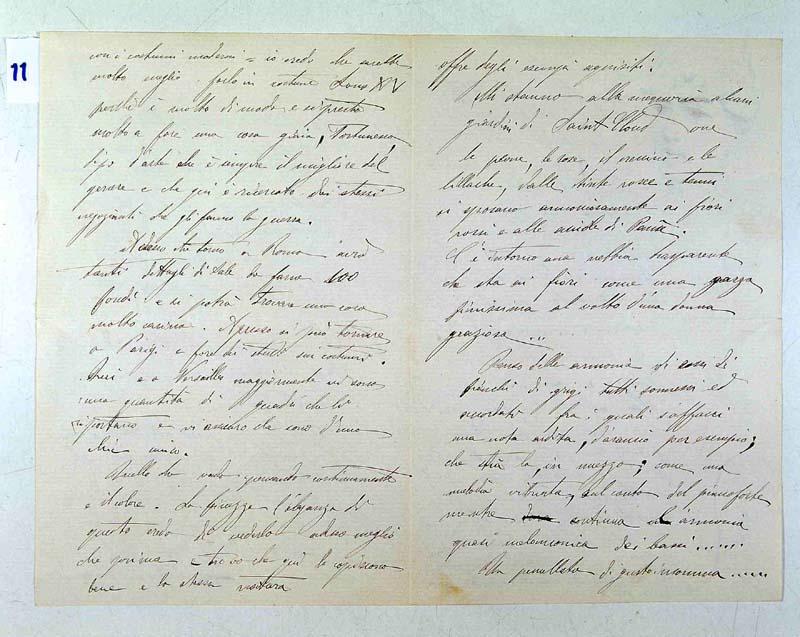 11
con i costumi moderni = io credo che sarebbe
molto meglio farlo in costume Louis XV
perchè è molto di moda e si presta
molto a fare una cosa gaia,
tipo d'arte che è sempre il migliore del
genere e che quì è ricercato dai stessi
negozianti che gli fanno la guerra.
Adesso che torno a Roma avrò
tanti dettagli di Sale da farne 100
e si potrà trovare una cosa
molto carina. si può tornare
a Parigi e fare dei studi sui costumi.
e a Versailles maggiormente vi sono
una quantità di quadri che li
riportano e vi assicuro che sono d'uno
chic unico.
Quello che vado provando continuamente
è il colore. La finezza l'eleganza di
questo credo di vederlo adesso meglio
che prima e trovo che quì lo capiscono
bene e la stessa natura
offre degli esempi squisiti.
Mi stanno alla memoria alcuni
giardini di Saint Cloud ove
le peonie, le rose, il e le
lillache, dalle tinte rosee e tenui
si sposano armoniosamente ai fiori
rossi e alle aiuole di
C'è intorno una nebbia trasparente
che sta ai fiori come una garza
finissima al volto d'una donna
graziosa....
Penso delle armonie di così di
bianchi di grigi tutti sommessi ed
accordati fra i quali s'affacci
una nota ardita, d'arancio per esempio;
che stia là, in mezzo, come una
melodia vibrata, sul canto del pianoforte
mentre continua l'armonia
quasi melanconica dei bassi......
Un di gusto insomma......